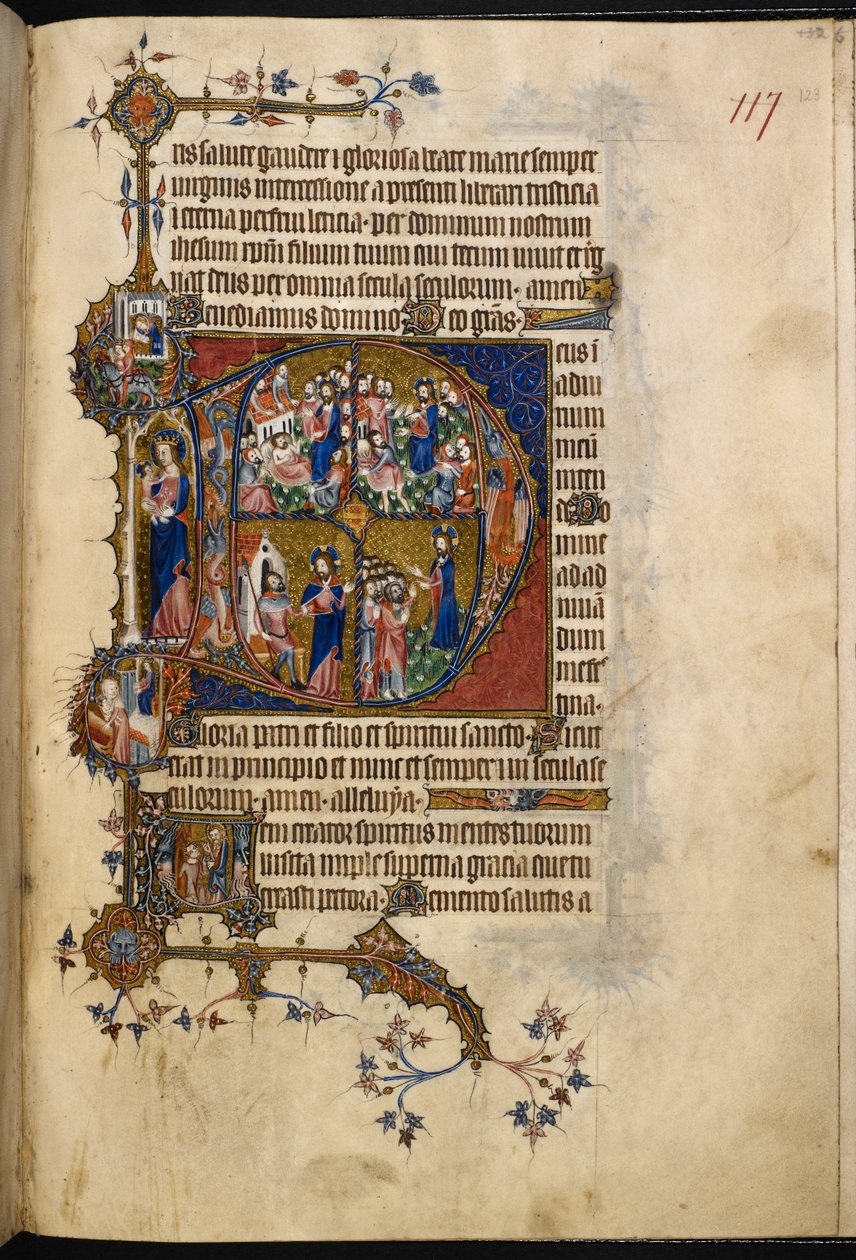 117
123
6
tis salute gaudere ⁊ gloriosa beate marie semper
uirginis intercessione a presenti liberari tristicia
⁊ eterna perfrui leticia. per dominum nostrum
ihesum xpm filium tuum qui tecum uiuit et reg
nat deus per omnia secula seculorum. amen
Benediamus domino Deo gras.
Deus i
adiu
torium
meu
inten
de Do
mine
ad ad
iuua
dum
me fes
tina.
Gloria patri et filio et spiritui sancto. Sicut
erat in principio et nunc et semper ⁊ in secula se
culorum. amen. alleluya.
Ueni creator spiritus mentes tuorum
uisita imple superna gracia que tu
creasti pectora. Memento salutis a